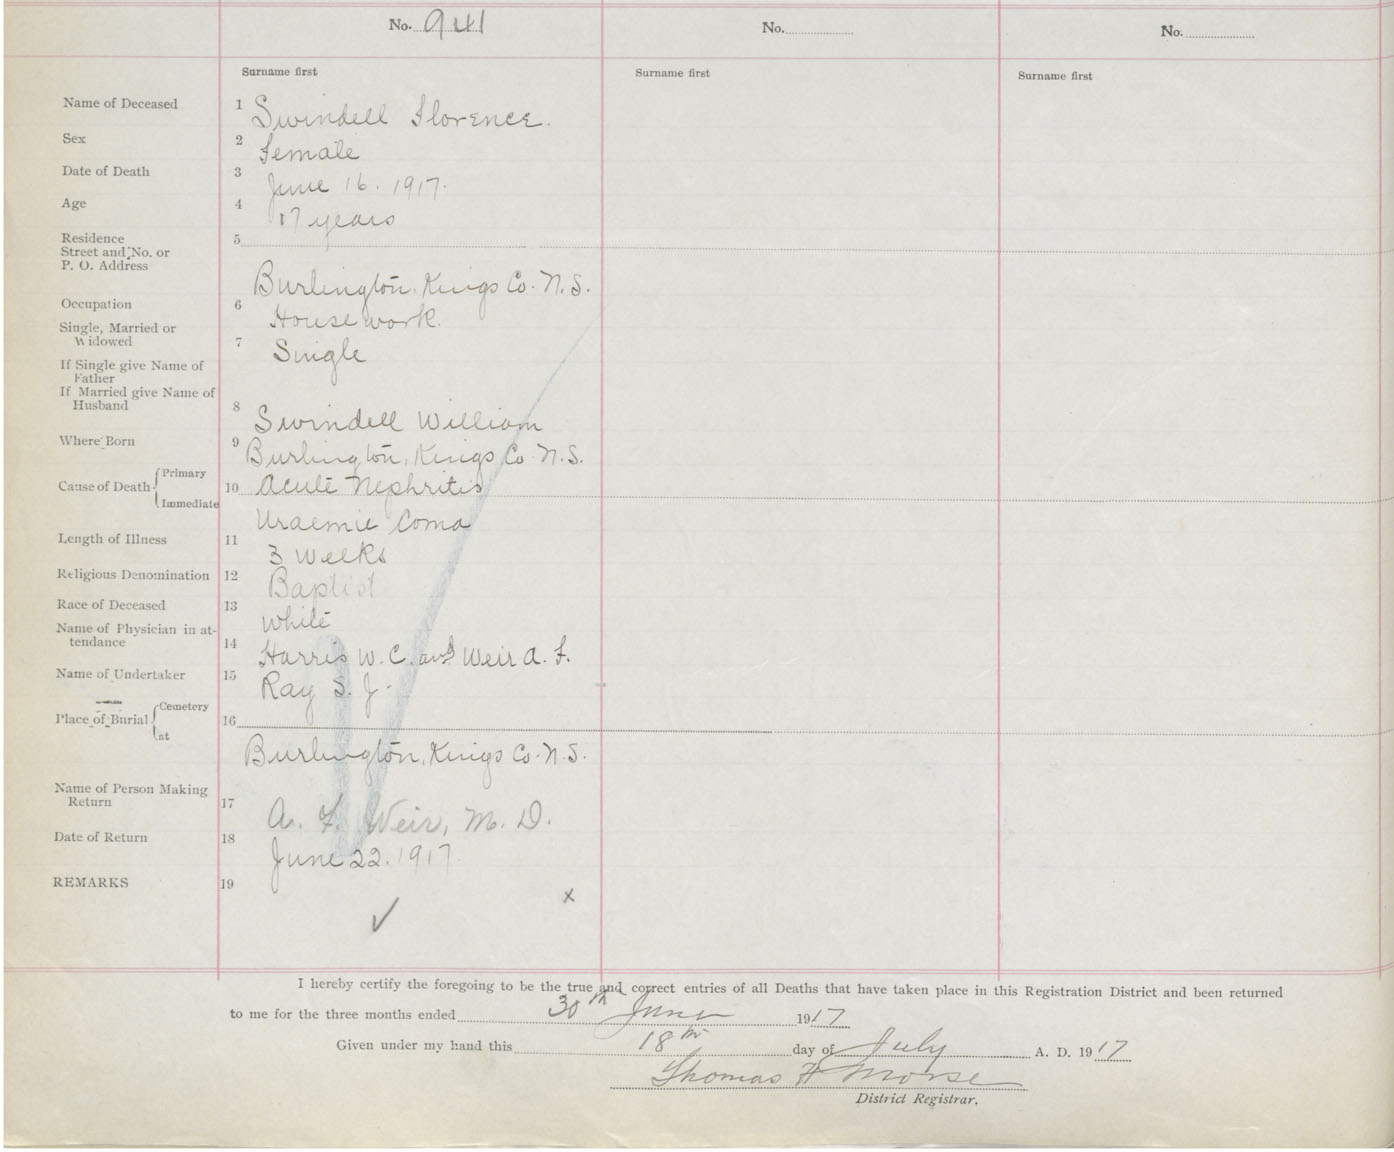 No. 941 No. No.
Surname first Surname first Surname first
Name of Deceased 1 Swindell Florence.
Sex 2 Female
Date of Death 3 June 16. 1917.
Age 4 17 years
Residence 5
Street and No. or
P. O. Address Burlington. Kings Co. N.S.
Occupation 6 House work.
Single, Married or
Widowed 7 Single
If Single give Name of
Father
If Married give Name of
Husband 8 Swindell William
Where Born 9 Burlington, Kings Co. N.S.
Cause of Death Primary 10 Acute Nephritis
Immediate Uraemic Coma
Length of Illness 11 3 weeks
Religious Denomination 12 Baptist
Race of Deceased 13 White
Name of Physician in at-
tendance 14 Harris W. C. and Weir A. F.
Name of Undertaker 15 Ray S. J.
Place of Burial Cemetery 16
at Burlington, Kings Co. N.S.
Name of Person Making
Return 17 A. F. Weir, M. D.
Date of Return 18 June 22. 1917.
REMARKS 19
✓ x
I hereby certify the foregoing to be the true and correct entries of all Deaths that have taken place in this Registration District and been returned
to me for the three months ended 30th June 1917
Given under my hand this 18th day of July A. D. 1917
Thomas H Morse
District Registrar.